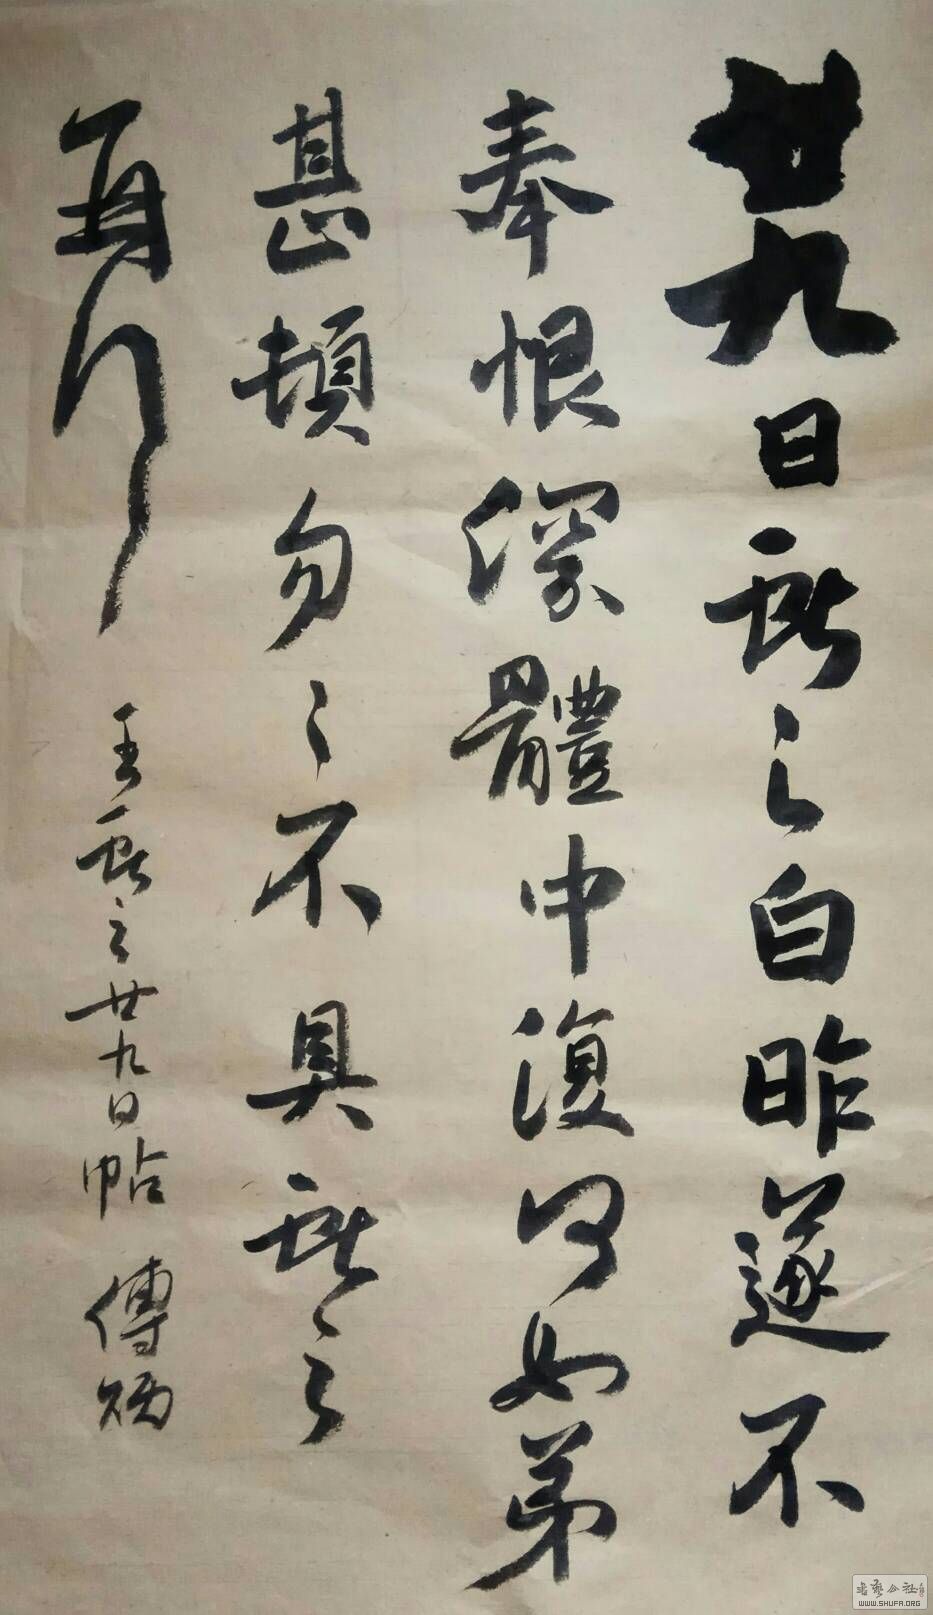 廿九日獻之白昨遂不
奉恨深體中復何如弟
甚頓勿々不具獻之
再拜
王獻之廿九日帖 傅炳
书艺公社
WWW.SHUFA.ORG